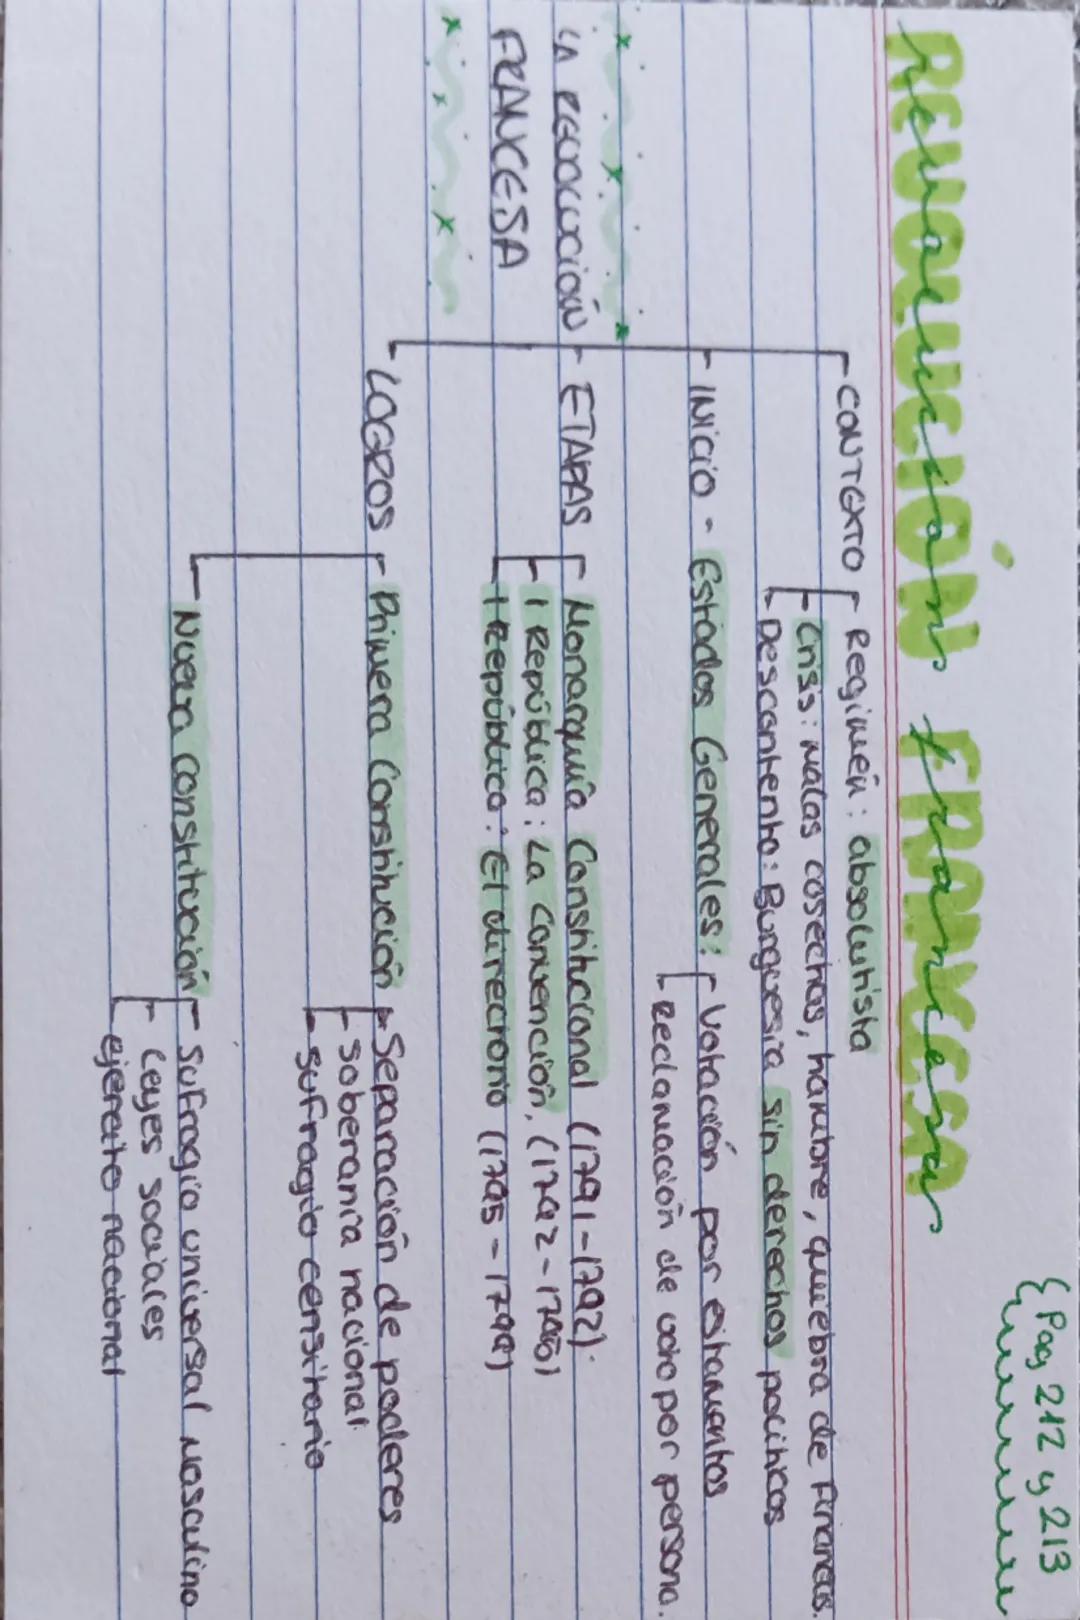 {Pag 212 y 213
REVOLUCIÓN FRANCESA
Revolución francesa
LA REVOLUCIÓN
FRANCESA
- CONTEXTO
- Regimén: absolutista
- Crisis: malas cosechas, hambre, quiebra de finanzas.
- Descontento: Burguesía sin derechos políticos
- INICIO - Estados Generales:
- Votación por estamentos
- Reclamación de voto por persona.
- ETAPAS
- Monarquía Constitucional (1791-1792).
- I República: La Convención, (1792-1795)
- I República: El directorio (1795-1799)
- LOGROS
- Primera Constitución
- Separación de poderes
- soberanía nacional
- sufragio censitario
- Nueva constitución
- Sufragio universal masculino
- Leyes sociales
- ejercito nacional